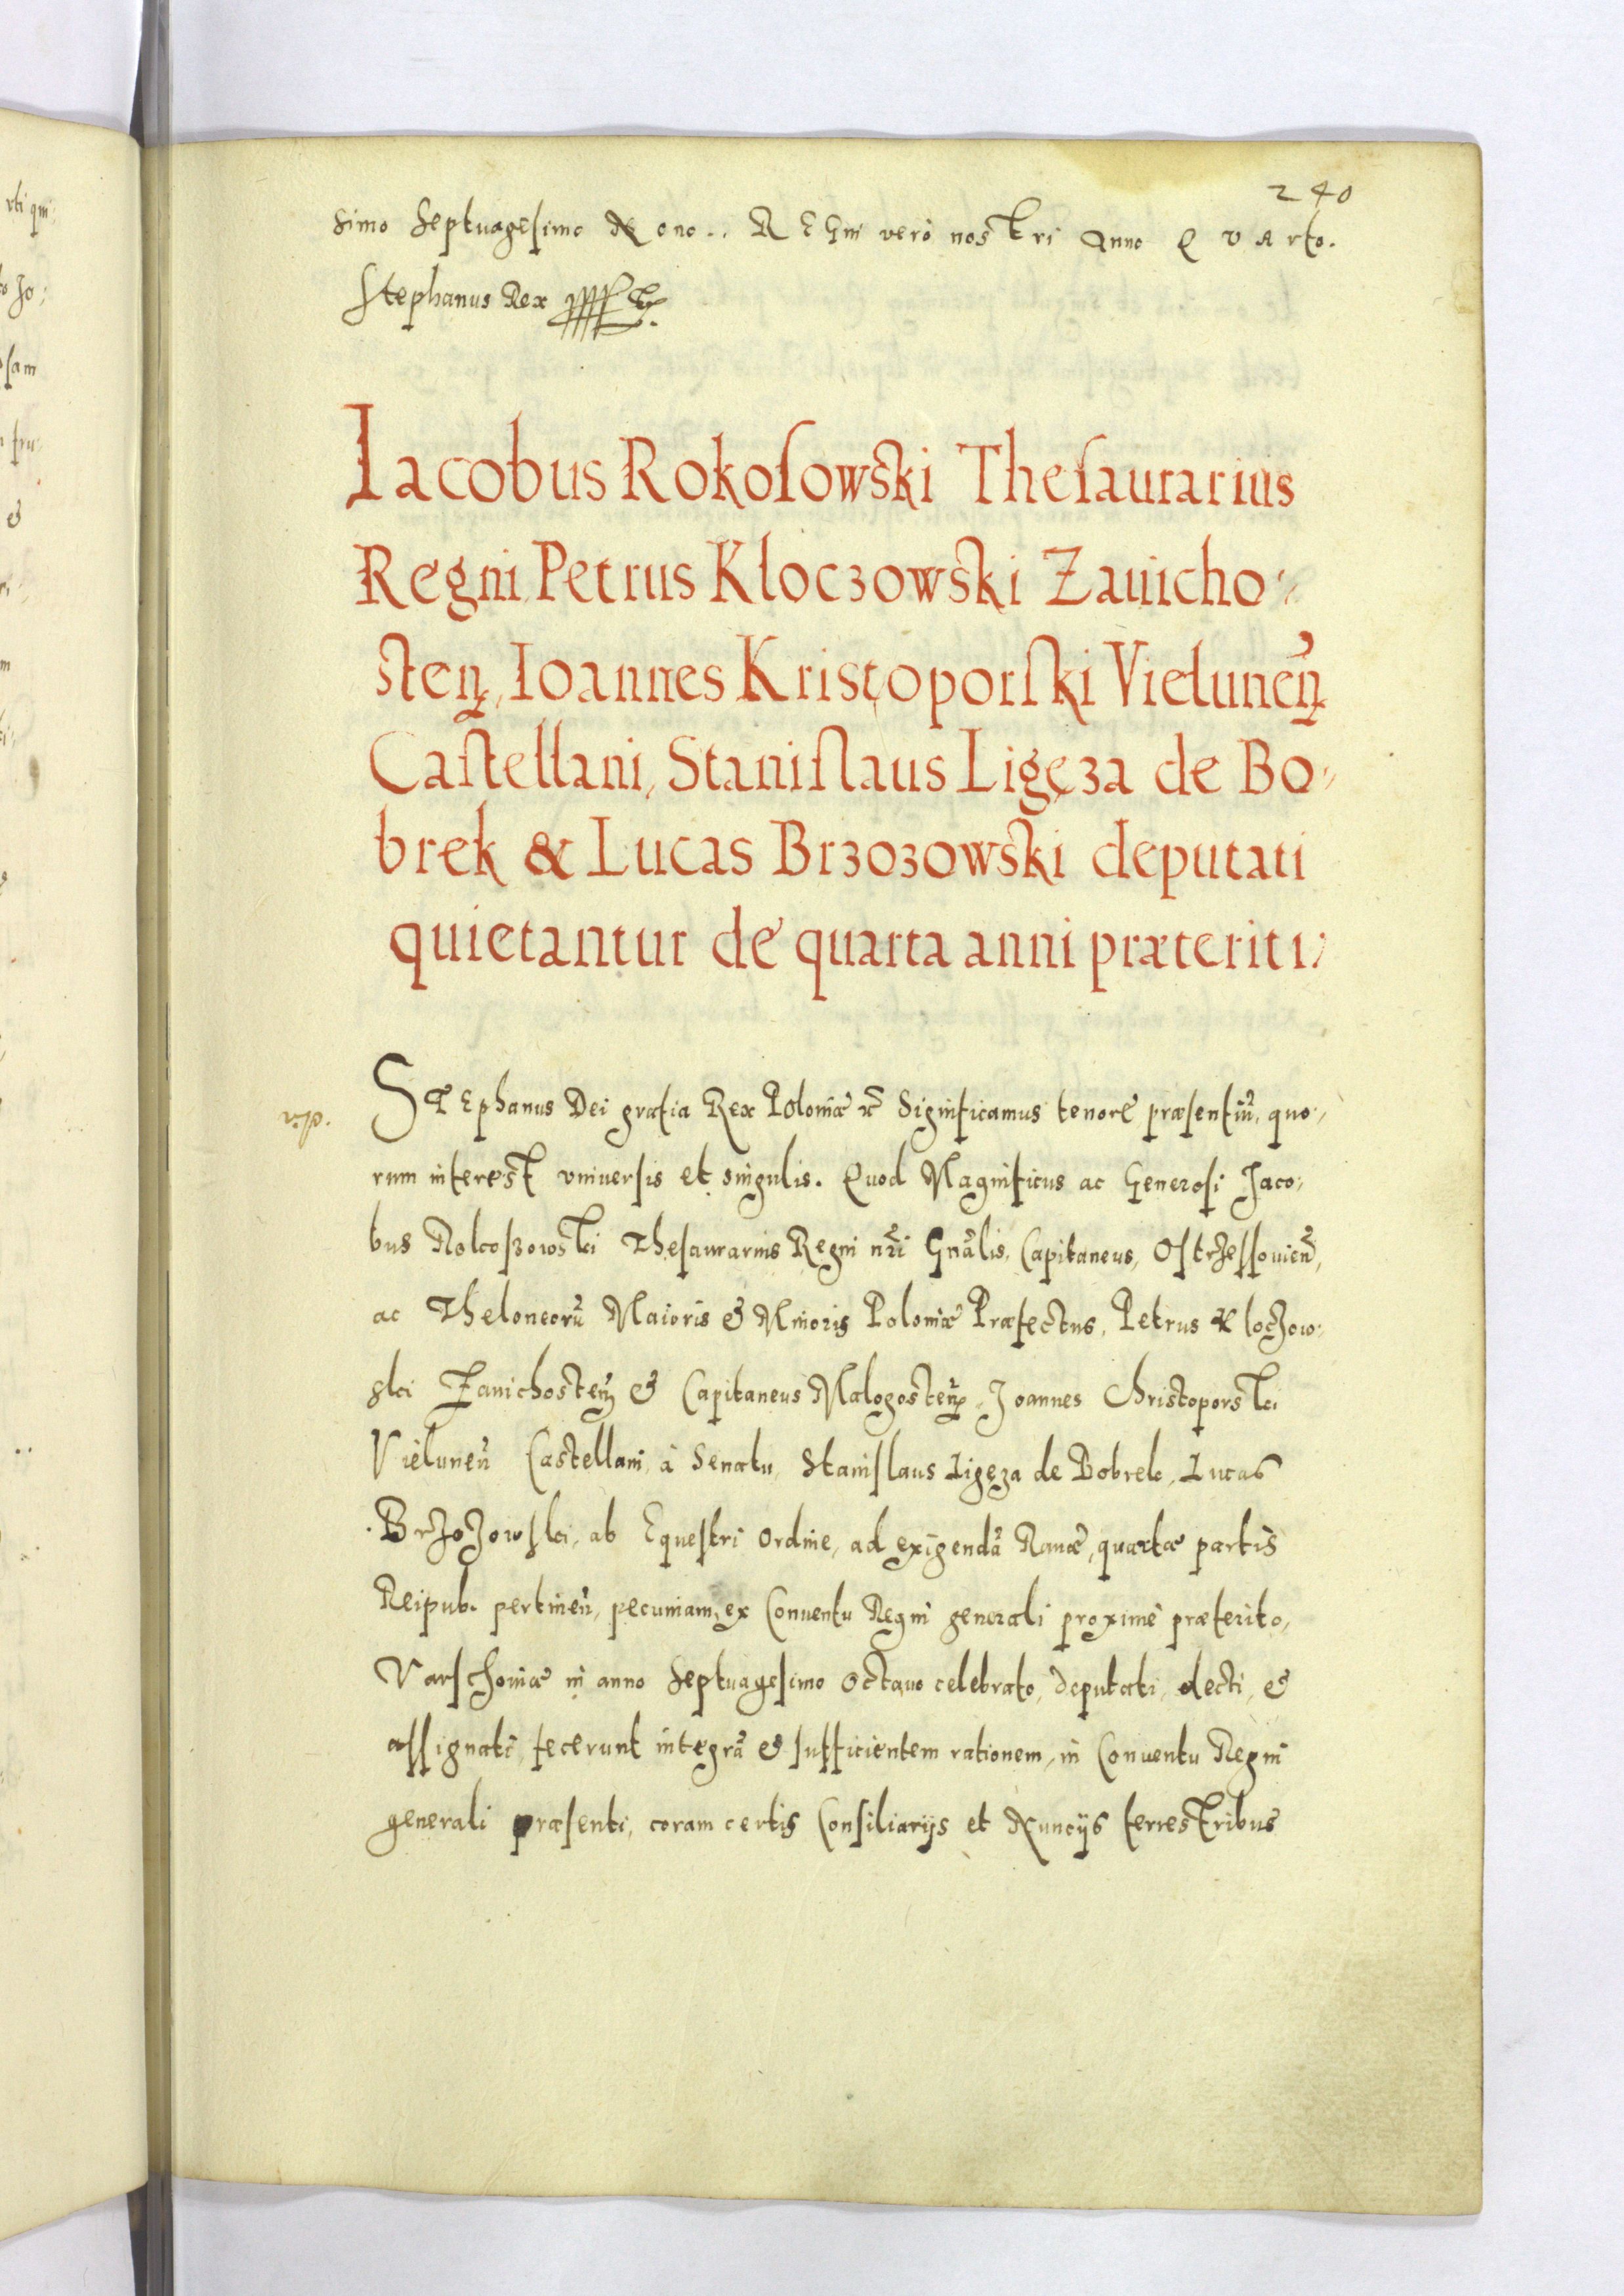 240
simo Septuagesimo Nono.. REGni verò nostri Anno QVArto.
Stephanus Rex
Iacobus Rokosowski Thesaurarius
Regni, Petrus Kloczowski Zauicho⸗
sten̄, Ioannes Kristoporski Vielunen̄
Castellani, Stanislaus Ligęza de Bo⸗
brek & Lucas Brzozowski deputati
quietantur de quarta anni præteriti
STEphanus Dei gratia Rex Poloniæ &c̃ Significamus tenore præsentiũ, quo⸗
rum interest vniuersis et singulis. Quod Magnificus ac Generosi Jaco⸗
bus Rokoszowski Thesaurarius Regni nr̃i Gnãlis, Capitaneus, Ostrzessouien̄,
ac Theloneorũ Maioris & Minoris Poloniæ Præfectus, Petrus Kloczow⸗
ski Zauichosten̄ & Capitaneus Malogosten̄, Joannes Christoporski
Vielunen̄ Castellani, à Senatu, Stanislaus Ligęza de Bobrek, Lucas
Brzozowski, ab Equestri ordine, ad exigendã Rauæ, quartæ partis
Reipub. pertinen̄, pecuniam, ex Conuentu Regni generali proximè præterito,
Varschouiæ in anno Septuagesimo Octauo celebrato, deputati, electi, &
assignati, fecerunt integrã & sufficientem rationem, in Conuentu Regni
generali præsenti, coram certis Consiliarijs et Nuncijs terrestribus